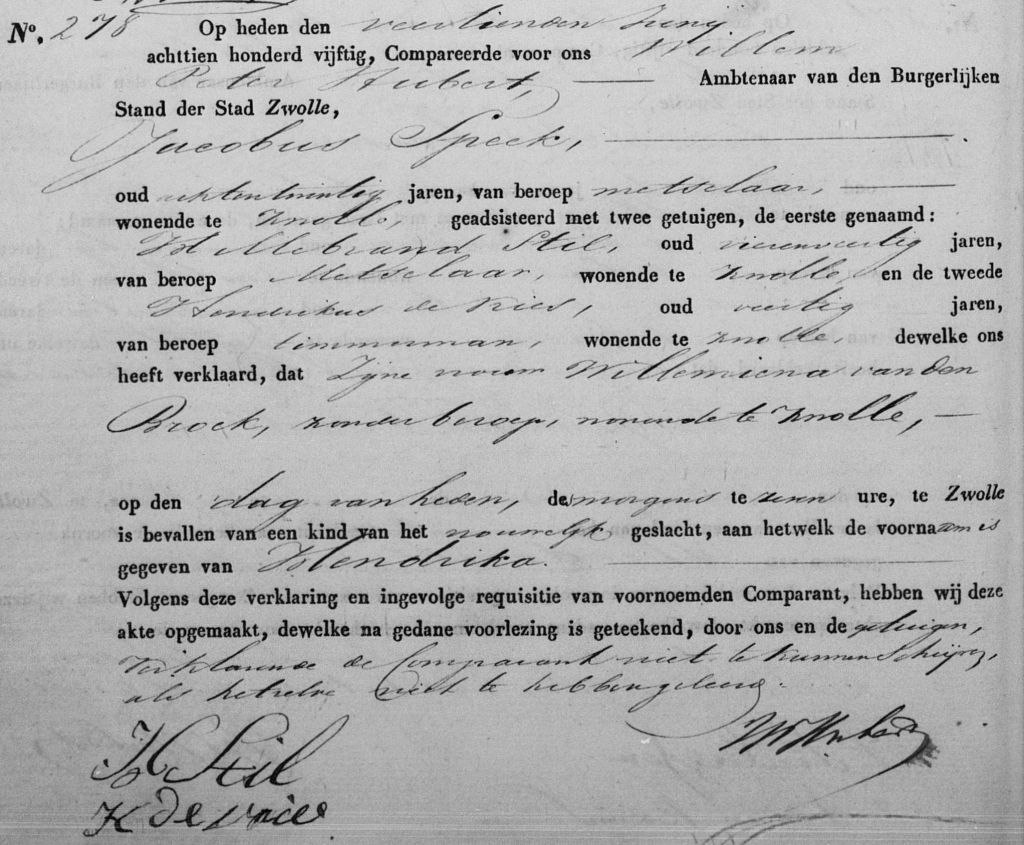 No. 278 Op heden den veertienden Juny
achttien honderd vijftig, Compareerde voor ons Willem
Peter Hubert, Ambtenaar van den Burgerlijken
Stand der Stad Zwolle,
Jacobus Speek,
oud achtentwintig jaren, van beroep metselaar,
wonende te Zwolle, geadsisteerd met twee getuigen, de eerste genaamd:
Hillebrand Stil, oud vierenveertig jaren,
van beroep Metselaar, wonende te Zwolle, en de tweede
Hendrikus de Vries, oud veertig jaren,
van beroep timmerman, wonende te Zwolle, dewelke ons
heeft verklaard, dat Zijne vrouw Willemiena van den
Broek, zonder beroep, wonende te Zwolle,
op den dag van heden, des morgens te zeven ure, te Zwolle
is bevallen van een kind van het vrouwelijk geslacht, aan hetwelk de voornaam is
gegeven van Hendrika.
Volgens deze verklaring en ingevolge requisitie van voornoemden Comparant, hebben wij deze
akte opgemaakt, dewelke na gedane voorlezing is geteekend, door ons en de getuigen,
Verklarende de Comparant niet te kunnen Schrijven,
als hetzelve niet te hebben geleerd.
WPHubert
H Stil
H de Vries